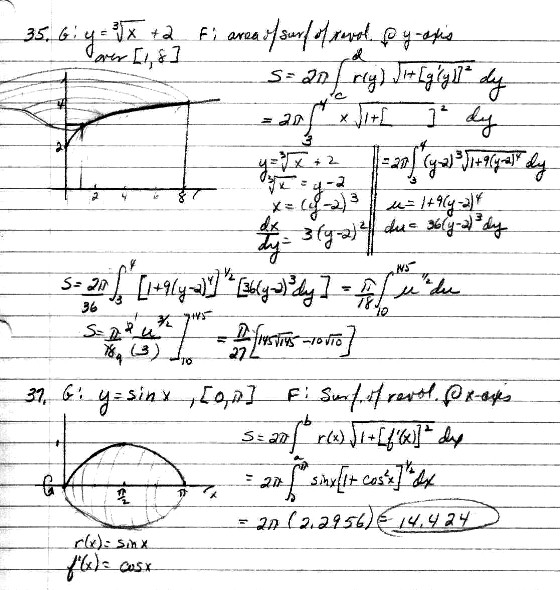 35. G: y = ∛x + 2 F: area of surf. of revol. @ y-axis
over [1, 8]
S = 2π ∫_c^d r(y) √(1+[g'(y)]²) dy
= 2π ∫_3^4 x √(1+[ ]²) dy
4
2
2 4 6 8
y = ∛x + 2
∛x = y-2
x = (y-2)³
dx/dy = 3(y-2)²
= 2π ∫_3^4 (y-2)³ √(1+9(y-2)⁴) dy
u = 1+9(y-2)⁴
du = 36(y-2)³ dy
S = 2π/36 ∫_3^4 [1+9(y-2)⁴]^(1/2) [36(y-2)³ dy] = π/18 ∫_10^145 u^(1/2) du
S = π/18 · 2u^(3/2)/(3) ]_10^145 = π/27 [145√145 - 10√10]
37. G: y = sin x , [0, π] F: Surf. of revol. @ x-axis
S = 2π ∫_a^b r(x) √(1+[f'(x)]²) dx
= 2π ∫_0^π sin x [1+ cos²x]^(1/2) dx
= 2π (2.2956) = 14.424
1
π/2 π x
r(x) = sin x
f'(x) = cos x